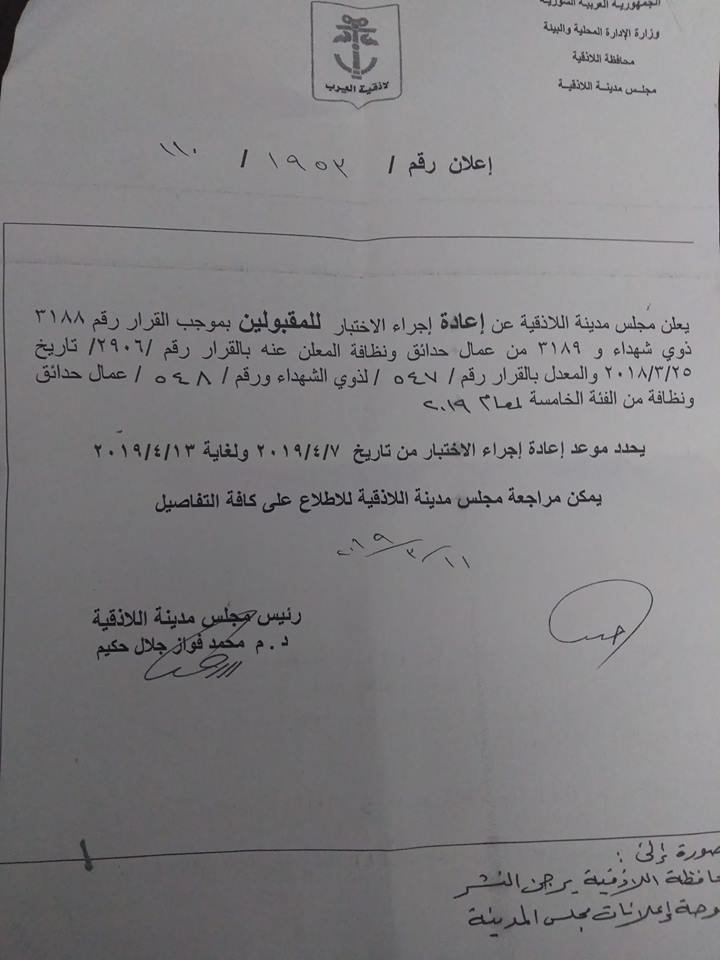 الجمهورية العربية السورية
وزارة الإدارة المحلية والبيئة
محافظة اللاذقية
مجلس مدينة اللاذقية
لاذقية العرب
إعلان رقم / ١٩٥٣ / ١١٠
يعلن مجلس مدينة اللاذقية عن إعادة إجراء الاختبار للمقبولين بموجب القرار رقم ٣١٨٨
ذوي شهداء و ٣١٨٩ من عمال حدائق ونظافة المعلن عنه بالقرار رقم /٢٩٠٦/ تاريخ
٢٠١٨/٣/٢٥ والمعدل بالقرار رقم / ٥٤٧ / لذوي الشهداء ورقم / ٥٤٨ / عمال حدائق
ونظافة من الفئة الخامسة لعام ٢٠١٩
يحدد موعد إعادة إجراء الاختبار من تاريخ ٢٠١٩/٤/٧ ولغاية ٢٠١٩/٤/١٣
يمكن مراجعة مجلس مدينة اللاذقية للاطلاع على كافة التفاصيل
٢٠١٩/٣/١١
رئيس مجلس مدينة اللاذقية
د . م محمد فواز جلال حكيم
صورة إلى :
حافظة اللاذقية يرجى النشر
وحة إعلانات مجلس المدينة